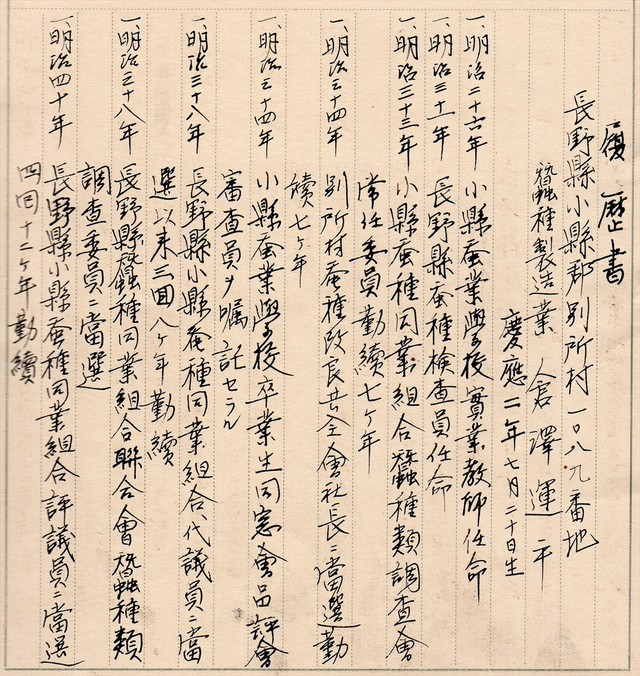 履歴書
長野縣小縣郡別所村一〇八九番地
蠶種製造業 倉澤運平
慶應二年七月二十日生
一、明治二十六年 小縣蚕業學校實業教師任命
一、明治三十一年 長野縣蚕種検査員任命
一、明治三十三年 小縣蚕種同業組合蠶種類調査會
常任委員勤續七ヶ年
一、明治三十四年 別所村蚕種改良社全會社長ニ當選勤
續七ヶ年
一、明治三十四年 小縣蚕業學校卒業生同窓會品評會
審査員ヲ嘱託セラル
一、明治三十八年 長野縣小縣蚕種同業組合代議員ニ當
選以来三回八ヶ年勤續
一、明治三十八年 長野縣蠶種同業組合聯合會蠶種類
調査委員ニ當選
一、明治四十年 長野縣小縣蚕種同業組合評議員ニ當選
四回十二ヶ年勤續